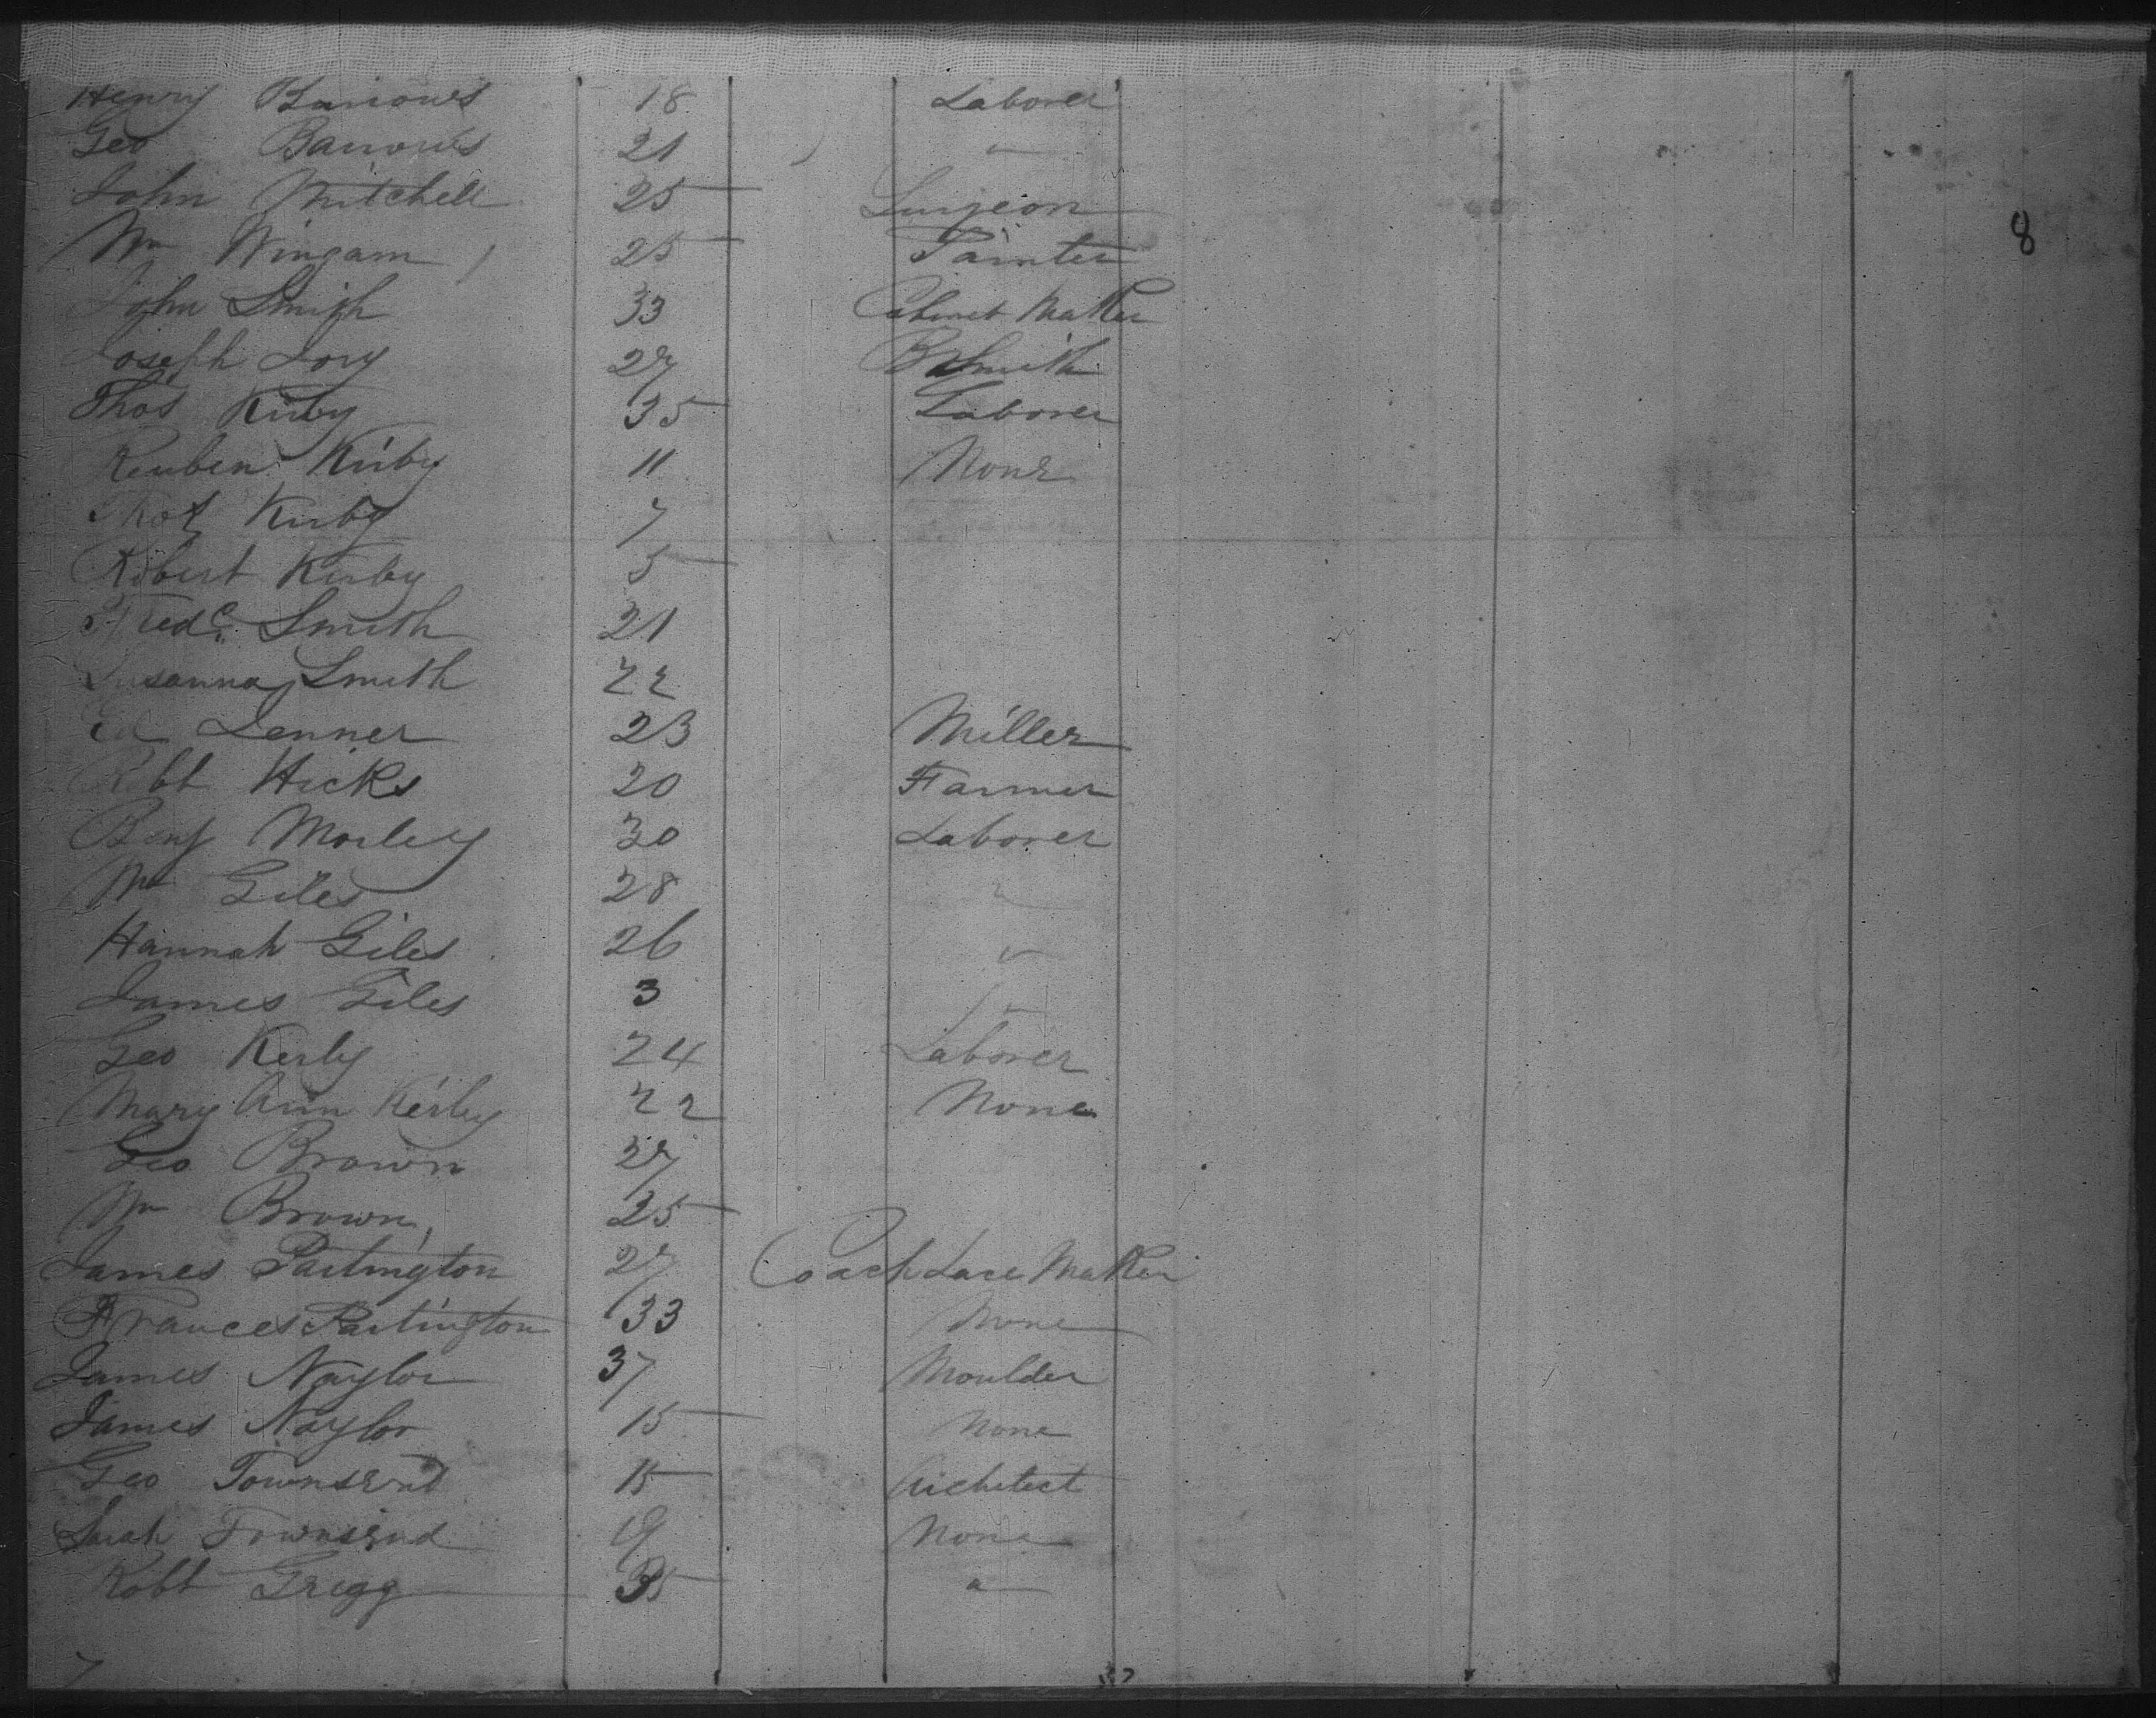 Henry Barrows 18 Laborer
Geo Barrows 21 "
John Mitchell 25 Surgeon
8
Wm Wingam 25 Painter
John Smith 33 Cabinet Maker
Joseph 27 B Smith
Thos Kirby 35 Laborer
Reuben Kirby 11 None
Kirby 7
Robert Kirby 5
Fredc Smith 21
Susanna Smith 22
Ed Lenner 23 Miller
Robt Hicks 20 Farmer
Benj Morley 30 Laborer
Wm Giles 28 "
Hannah Giles 26 "
James Giles 3 "
Geo Kerby 24 Laborer
Mary Ann Kerby 22 None
Geo Brown 27
Wm Brown 25
James Partington 27 Coach Lace Maker
Frances Partington 33 None
James Naylor 37 Moulder
James Naylor 15 None
Geo Townsend 15 Architect
Sarah Townsend 19 None
Robt Gregg 35 "